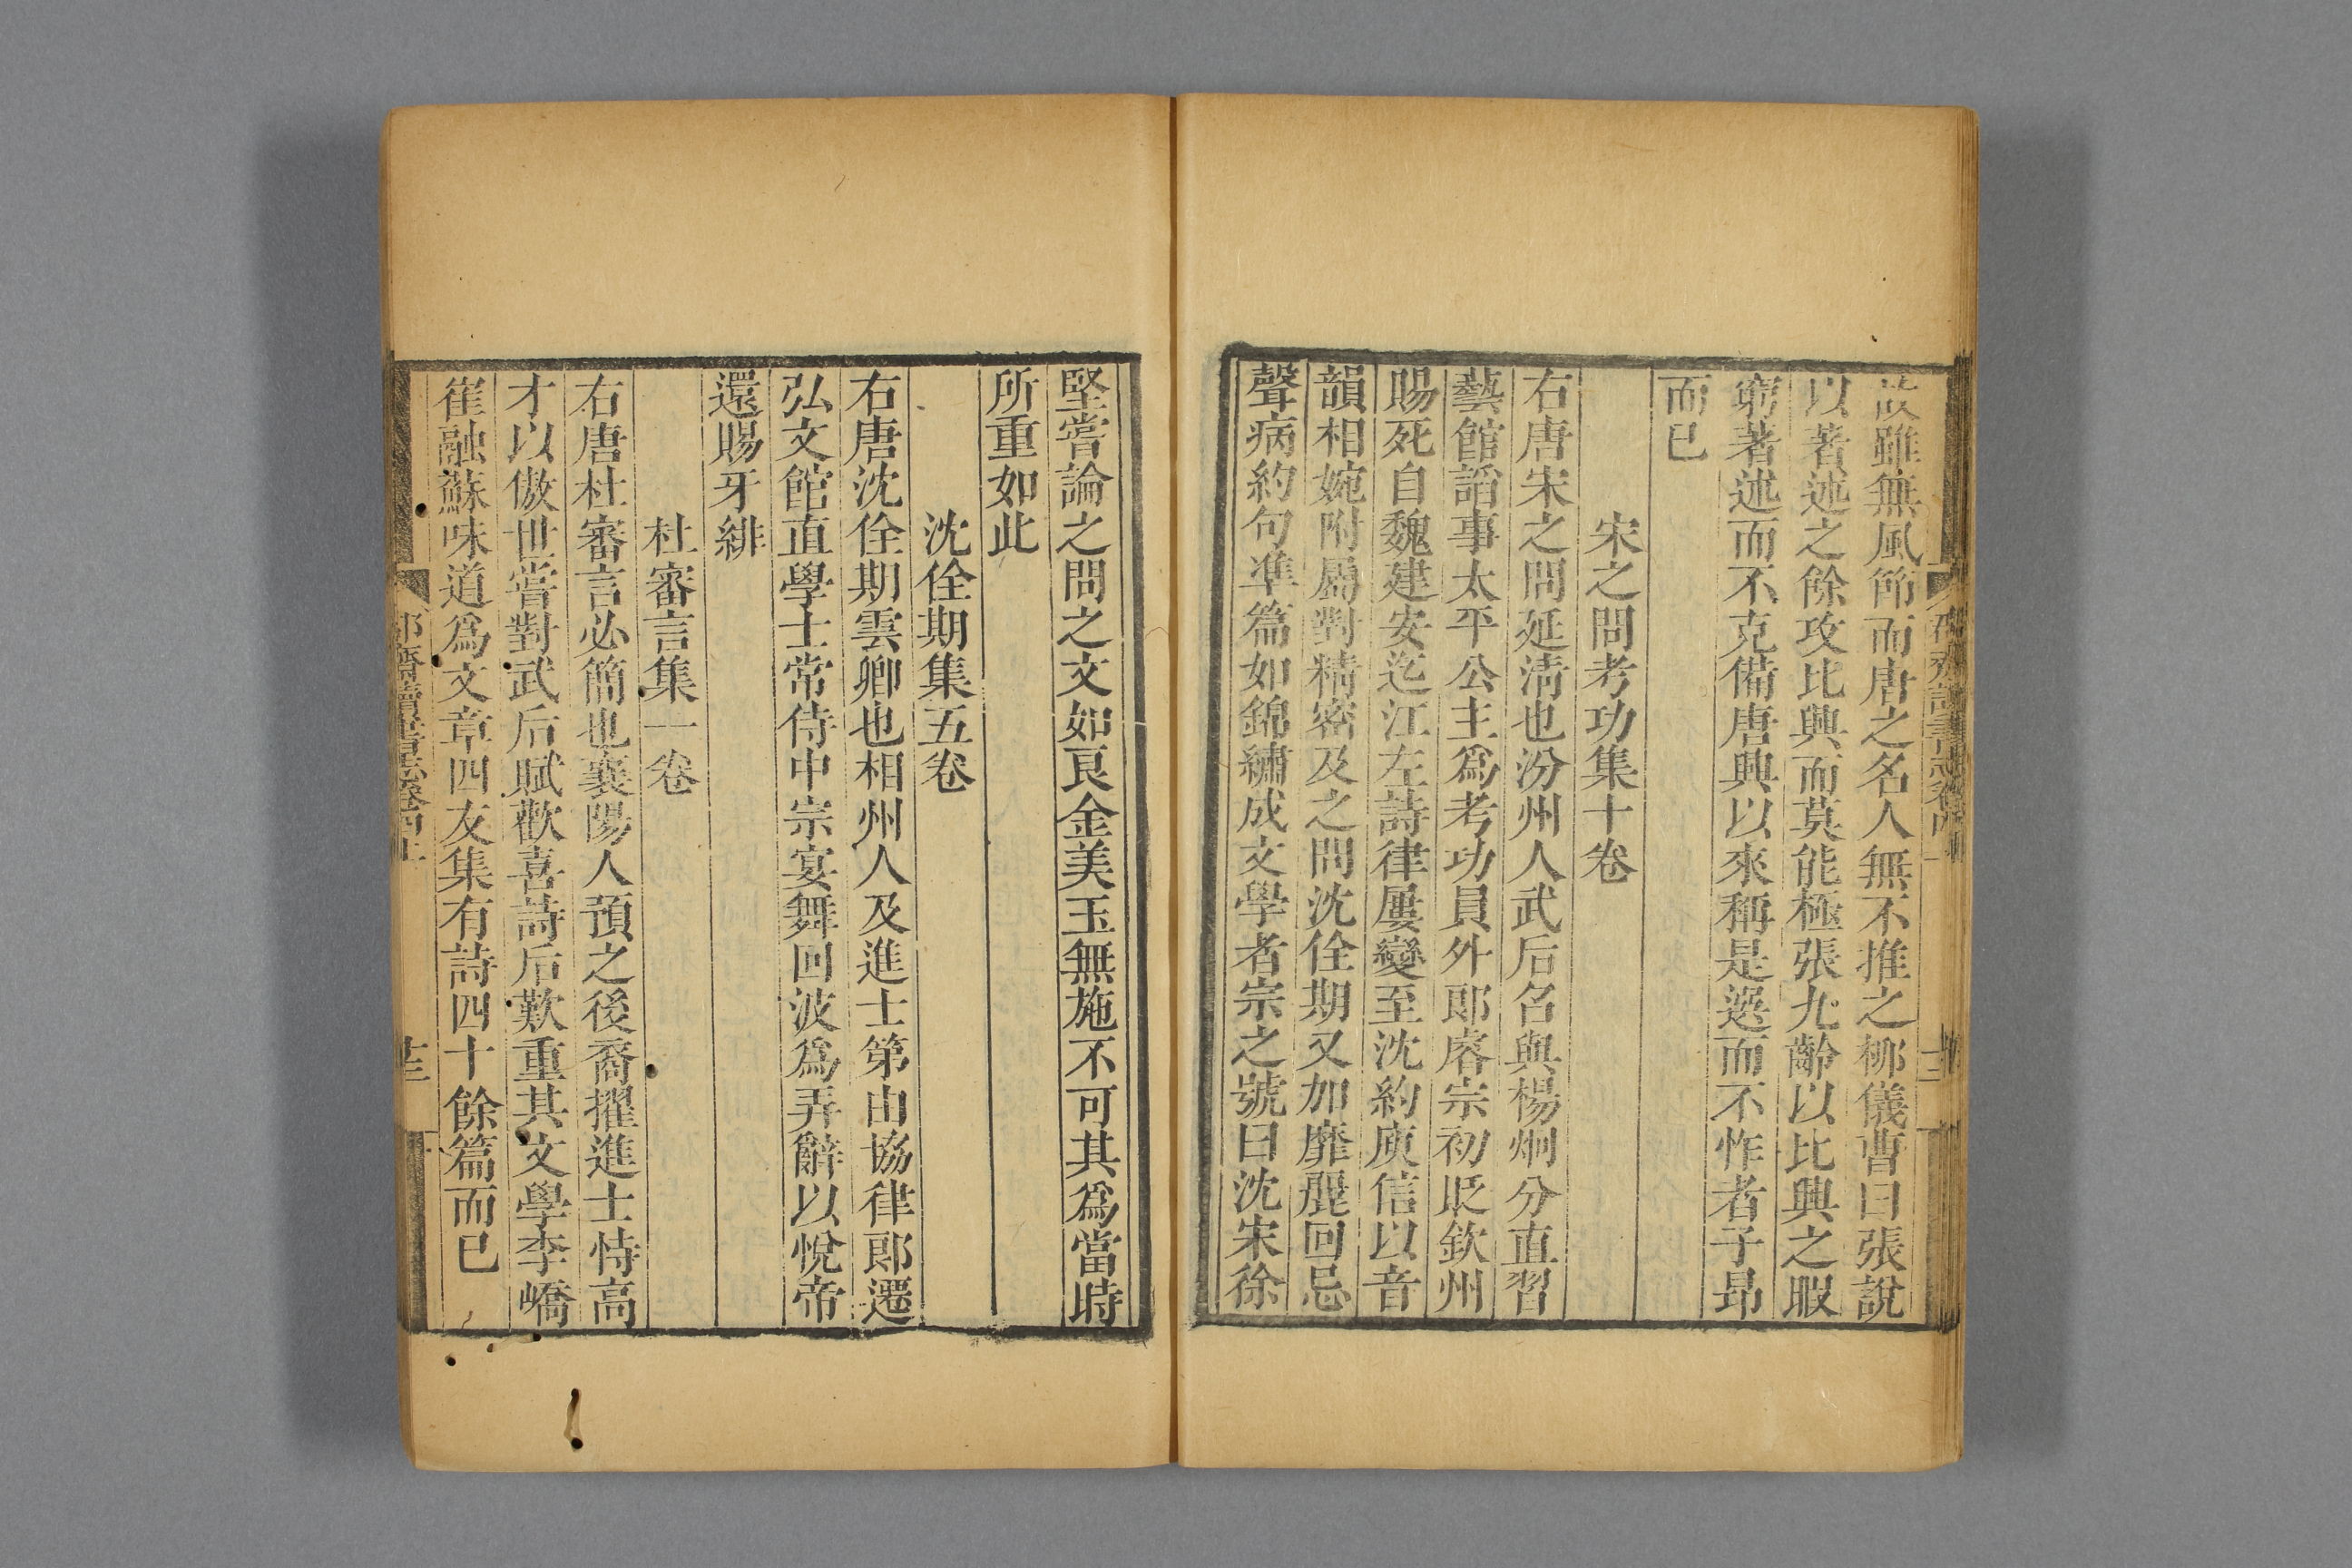 故雖無風節而唐之名人無不推之柳儀曹曰張說
以著述之餘攻比興而莫能極張九齡以比興之暇
窮著述而不克備唐興以來稱是選而不怍者子昻
而已
宋之問考功集十卷
右唐宋之問延淸也汾州人武后名與楊烱分直習
藝館諂事太平公主爲考功員外郎睿宗初貶欽州
賜死自魏建安迄江左詩律屢變至沈約庾信以音
韻相婉附屬對精密及之問沈佺期又加靡麗回忌
聲病約句準篇如錦繡成文學者宗之號曰沈宋徐
堅嘗論之問之文如良金美玉無施不可其爲當時
所重如此
沈佺期集五卷
右唐沈佺期雲卿也相州人及進士第由協律郎遷
弘文館直學士常侍中宗宴舞回波爲弄辭以悅帝
還賜牙緋
杜審言集一卷
右唐杜審言必簡也襄陽人預之後裔擢進士恃高
才以傲世嘗對武后賦歡喜詩后歎重其文學李嶠
崔融蘇味道爲文章四友集有詩四十餘篇而已